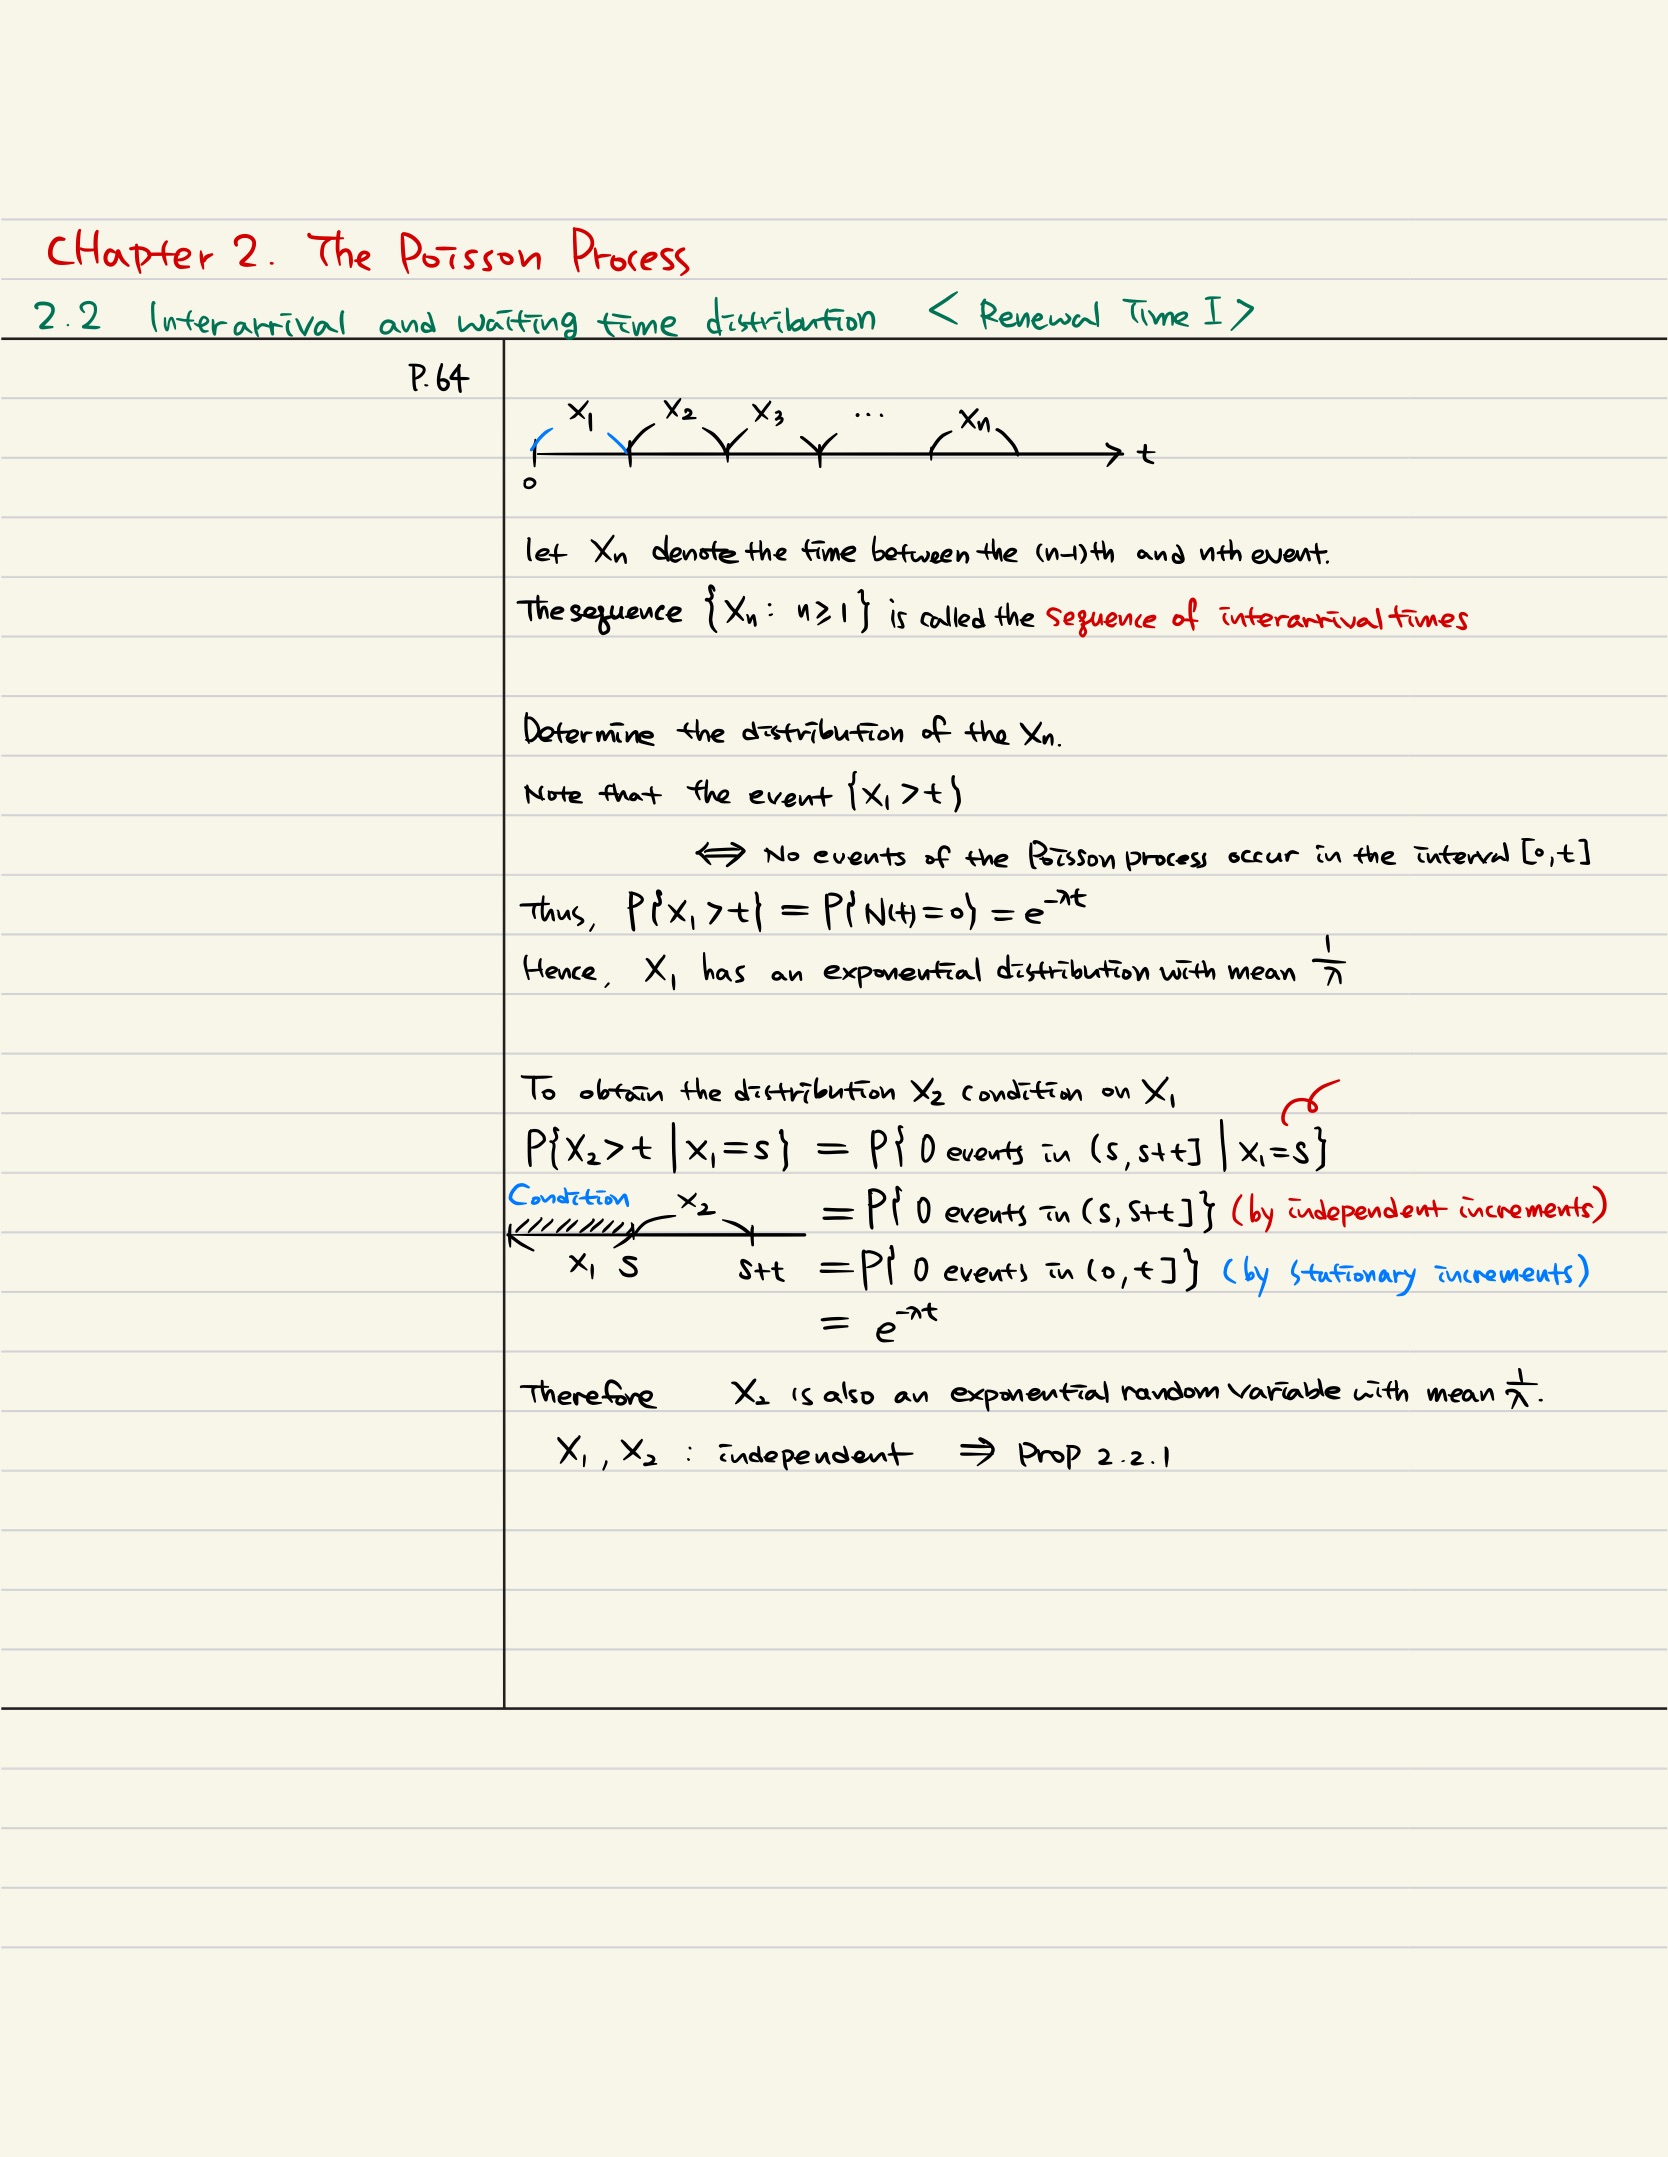 CHapter 2. The Poisson Process
2.2 Interarrival and waiting time distribution < Renewal Time I >
P.64
X₁ X₂ X₃ ... Xn
t
0
let Xn denote the time between the (n-1)th and nth event.
The sequence {Xn : n ≥ 1} is called the sequence of interarrival times
Determine the distribution of the Xn.
Note that the event {X₁ > t}
⟺ No events of the Poisson process occur in the interval [0,t]
Thus, P{X₁ > t} = P{N(t) = 0} = e^{-λt}
Hence, X₁ has an exponential distribution with mean 1/λ
To obtain the distribution X₂ condition on X₁
P{X₂ > t | X₁ = s} = P{ 0 events in (s, s+t] | X₁ = s}
Condition X₂ = P{ 0 events in (s, s+t]} (by independent increments)
X₁ s s+t = P{ 0 events in (0, t]} (by stationary increments)
= e^{-λt}
Therefore X₂ is also an exponential random variable with mean 1/λ.
X₁, X₂ : independent ⇒ Prop 2.2.1